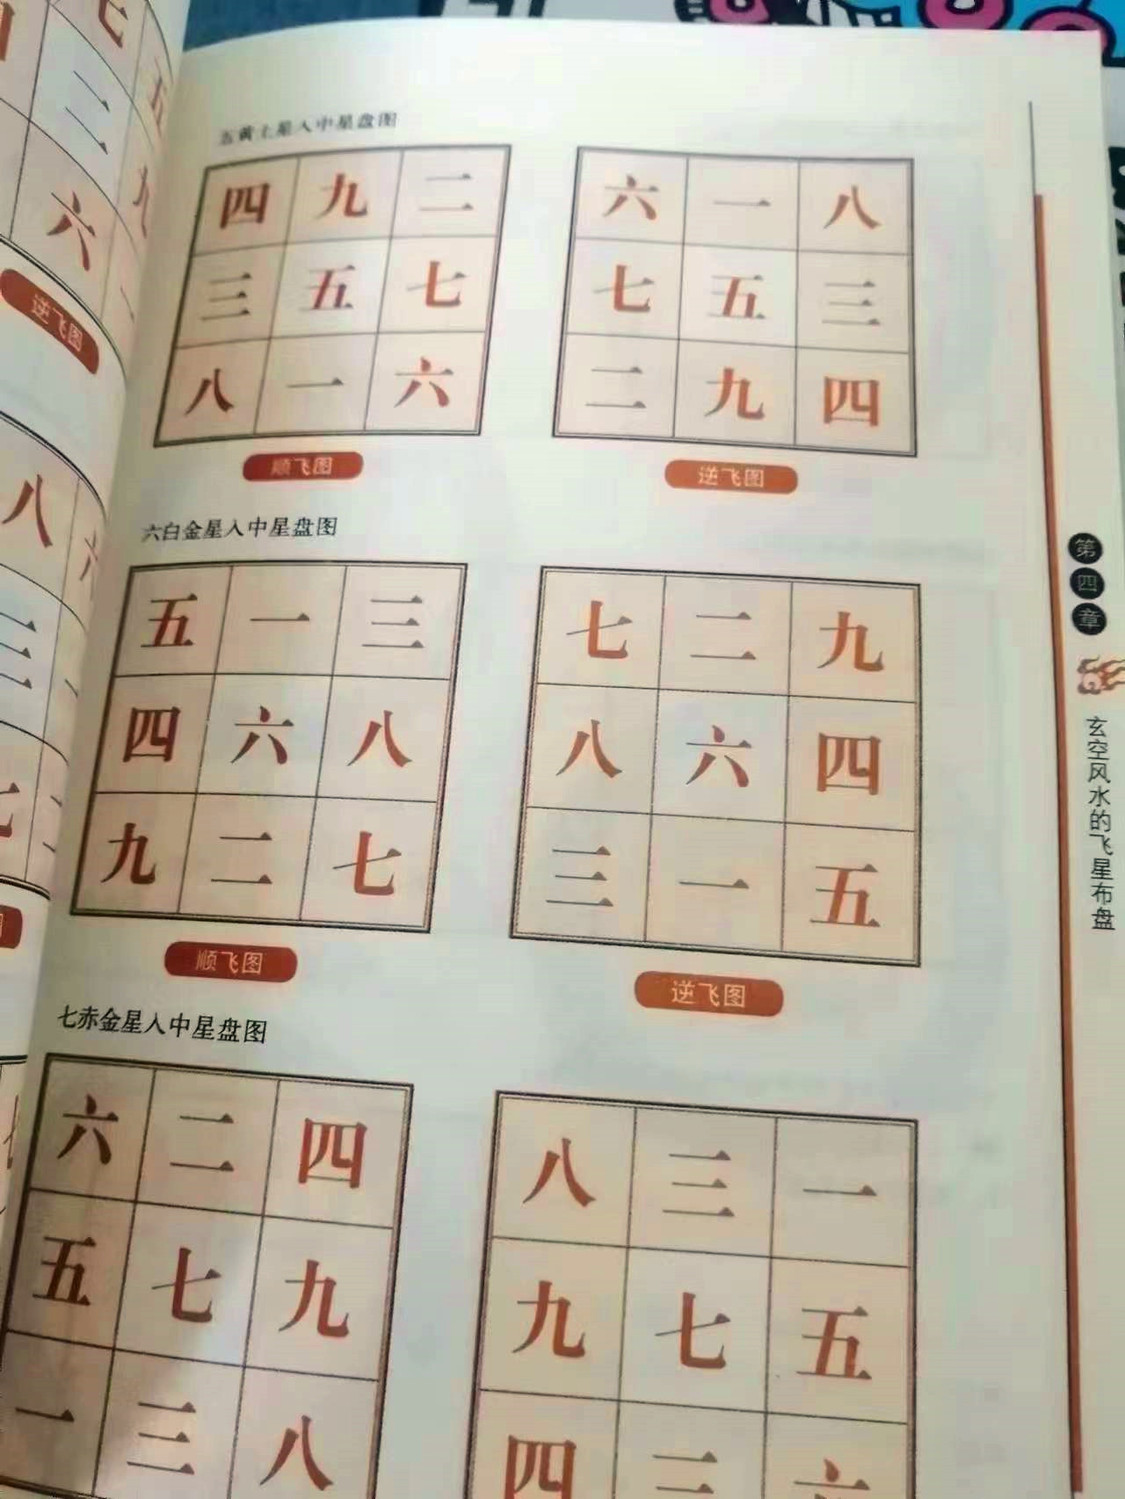 五黄土星入中星盘图
四 九 二
三 五 七
八 一 六
顺飞图
六 一 八
七 五 三
二 九 四
逆飞图
六白金星入中星盘图
五 一 三
四 六 八
九 二 七
顺飞图
七 二 九
八 六 四
三 一 五
逆飞图
七赤金星入中星盘图
六 二 四
五 七 九
一 三 八
八 三 一
九 七 五
四 六
第四章
玄空风水的飞星布盘
七 五
三 九
六
逆飞图
八 六
三
七